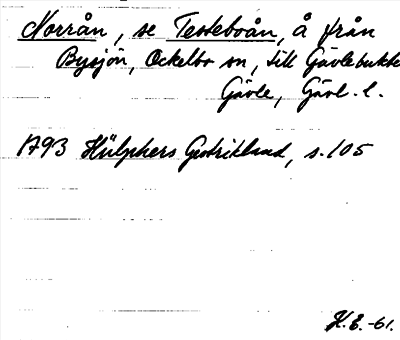 Norrån, se Testeboån, å från
Bysjön, Ockelbo sn, till Gävlebukten
Gävle, Gävl. l.
1793 Hülphers Gestrikland, s. 105
H.E. -61.